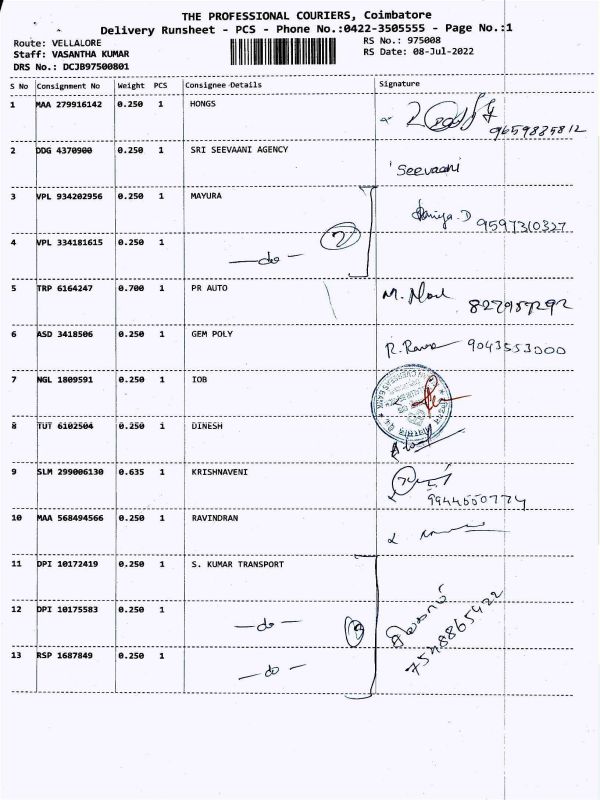 THE PROFESSIONAL COURIERS, Coimbatore
Delivery Runsheet - PCS - Phone No.:0422-3505555 - Page No.:1
Route: VELLALORE
Staff: VASANTHA KUMAR
DRS No.: DCJB97500801
RS No.: 975008
RS Date: 08-Jul-2022
S No Consignment No Weight PCS Consignee Details Signature
1 MAA 279916142 0.250 1 HONGS
9659835812
2 DDG 4370900 0.250 1 SRI SEEVAANI AGENCY Seevaani
3 VPL 934202956 0.250 1 MAYURA
9597310327
4 VPL 334181615 0.250 1
—do— 2
5 TRP 6164247 0.700 1 PR AUTO M.
8227957292
6 ASD 3418506 0.250 1 GEM POLY R. 9043553000
7 NGL 1809591 0.250 1 IOB
8 TUT 6102504 0.250 1 DINESH
9 SLM 299006130 0.635 1 KRISHNAVENI
9944550774
10 MAA 568494566 0.250 1 RAVINDRAN
11 DPI 10172419 0.250 1 S. KUMAR TRANSPORT
12 DPI 10175583 0.250 1 —do— 3
7548865422
13 RSP 1687849 0.250 1 —do—